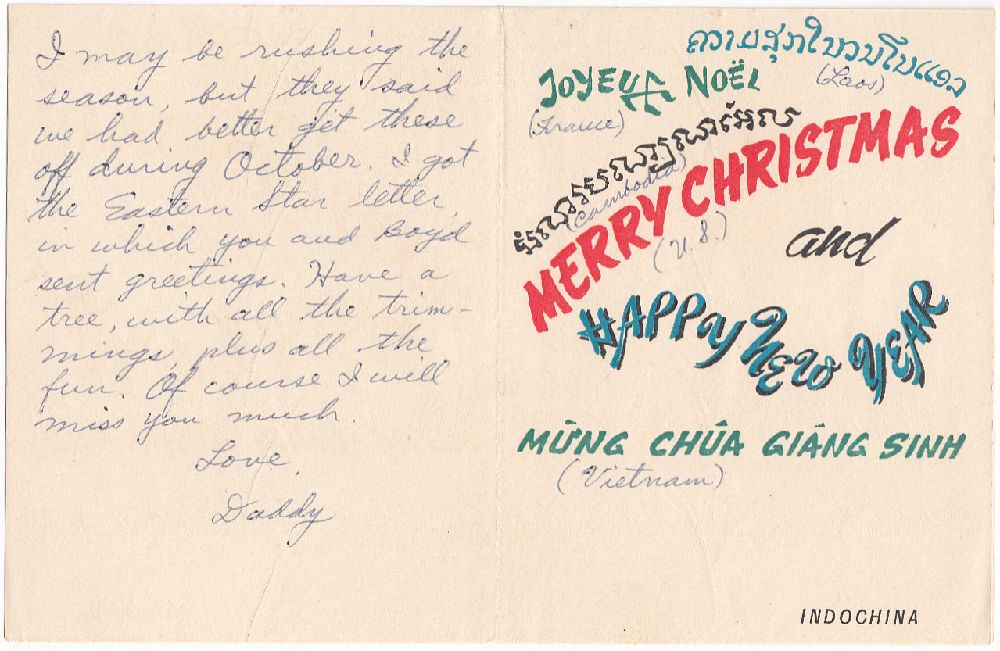 I may be rushing the
season, but they said
we had better get these
off during October. I got
the Eastern Star letter,
in which you and Boyd
sent greetings. Have a
tree, with all the trim-
mings, plus all the
fun. Of course I will
miss you much.
Love,
Daddy
ຄວາມສຸກໃນວັນໂນແອວ
(Laos)
JOYEUX NOËL
(France)
(Cambodia)
MERRY CHRISTMAS
(U.S.)
and
HAPPY NEW YEAR
MỪNG CHÚA GIÁNG SINH
(Vietnam)
INDOCHINA